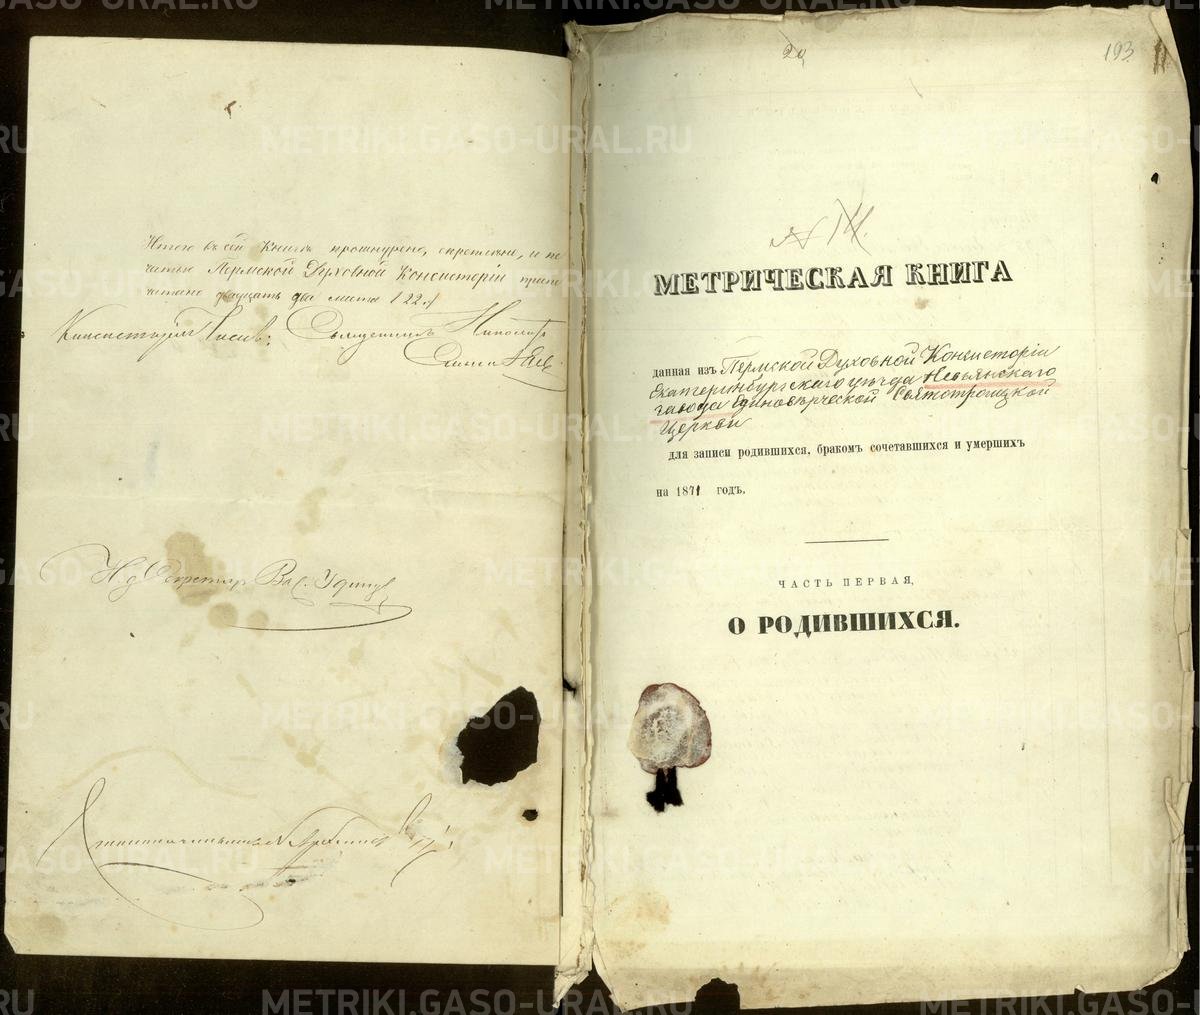 Итого въ сей Книгѣ прошнурено, скреплено, и пе
чатью Пермской Духовной Консисторіи припе
чатано двадцать два листа /22./
Консисторіи Членъ, Священникъ Ипполитъ
И д Секретаря Вас. Удинцев
20
193
№ 14.
МЕТРИЧЕСКАЯ КНИГА
данная изъ Пермской Духовной Консисторіи
Екатеринбургскаго уѣзда Невьянскаго
завода Единовѣрческой Святотроицкой
Церкви
для записи родившихся, бракомъ сочетавшихся и умершихъ
на 1871 годъ.
ЧАСТЬ ПЕРВАЯ,
О РОДИВШИХСЯ.
METRIKI.GASO-URAL.RU